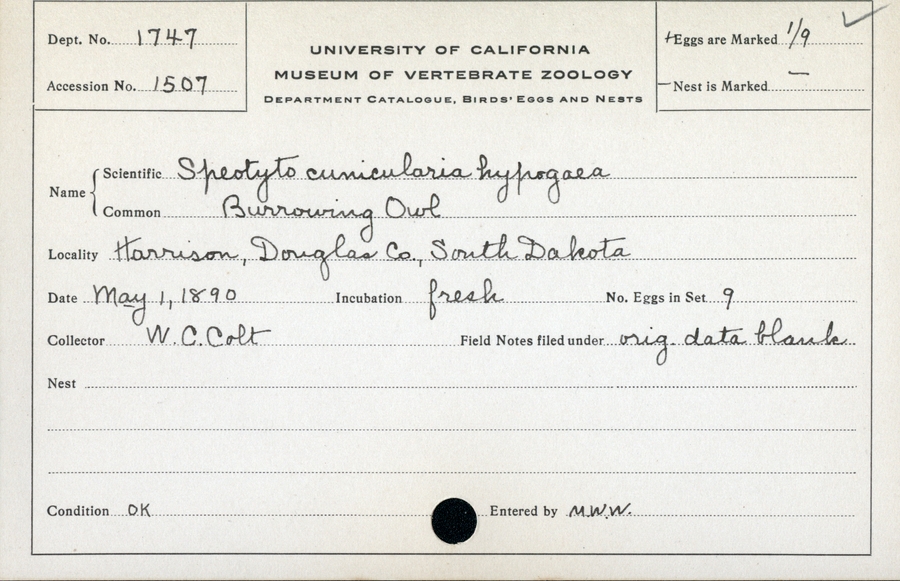 Dept. No. 1747
Accession No. 1507
UNIVERSITY OF CALIFORNIA
MUSEUM OF VERTEBRATE ZOOLOGY
DEPARTMENT CATALOGUE, BIRDS' EGGS AND NESTS
+Eggs are Marked 1/9
– Nest is Marked —
Name { Scientific Speotyto cunicularia hypogaea
Common Burrowing Owl
Locality Harrison, Douglas Co., South Dakota
Date May 1, 1890 Incubation fresh No. Eggs in Set 9
Collector W. C. Colt Field Notes filed under orig. data blank
Nest
Condition OK Entered by M.W.W.